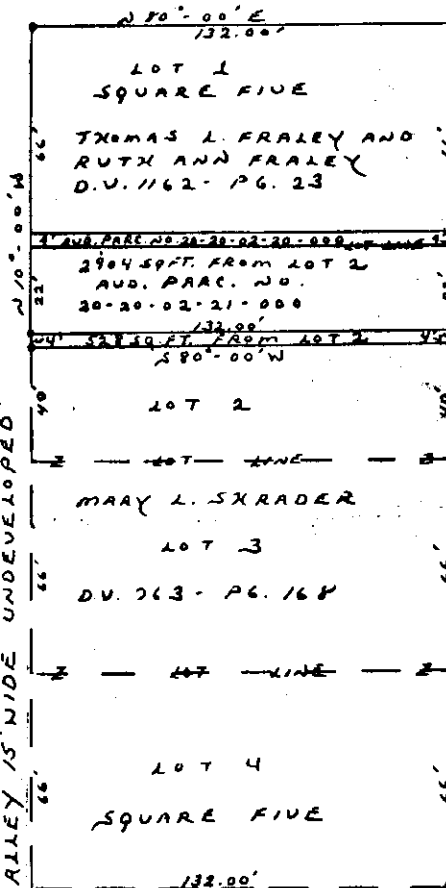 N 80°-00' E
132.00'
LOT 1
SQUARE FIVE
66'
THOMAS L. FRALEY AND
RUTH ANN FRALEY
D.V. 1162 - PG. 23
N 10°-00' W
4' AUD. PARC. NO. 20-20-02-20-000 LOT LINE
22'
2904 SQ FT. FROM LOT 2
AUD. PARC. NO.
20-20-02-21-000
132.00'
4' 528 SQ. FT. FROM LOT 2
S 80°-00' W
40' LOT 2 40'
LOT LINE
MARY L. SHRADER
LOT 3
66' 66'
D.V. 263 - PG. 168
LOT LINE
LOT 4
66' 66'
SQUARE FIVE
132.00'
ALLEY 15' WIDE UNDEVELOPED